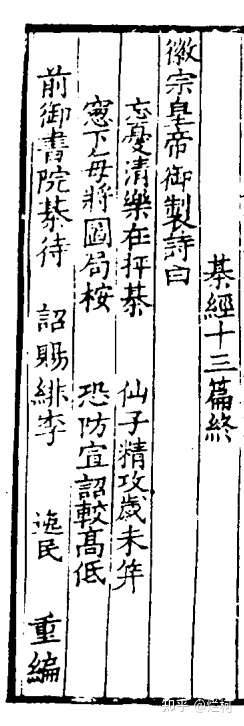 棊經十三篇終
徽宗皇帝御製詩曰
忘憂清樂在枰棊 仙子精攻歲未笄
窓下每將圖局桉 恐防宣詔較高低
前御書院棊待 詔賜緋李 逸民 重編
知乎 @烂柯